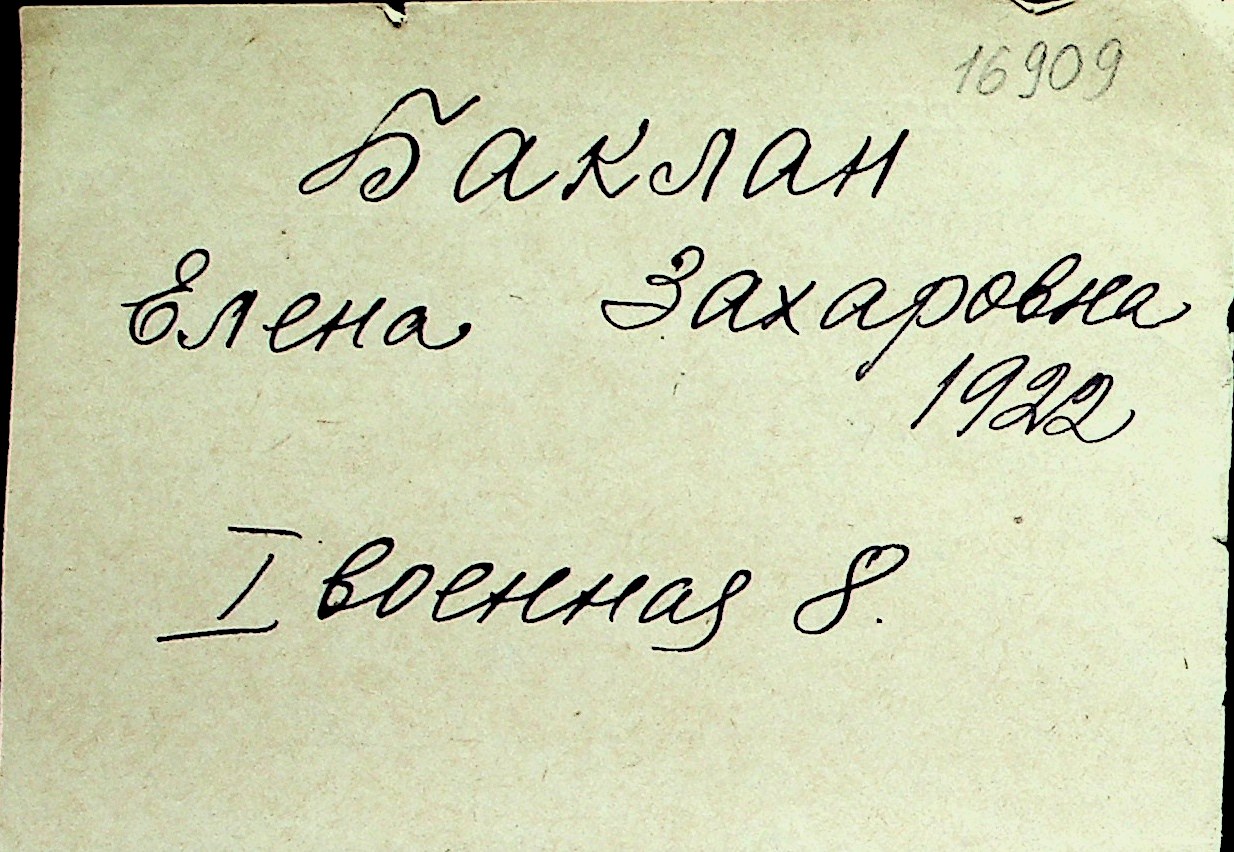 16909
Баклан
Елена Захаровна
1922
I военная 8.